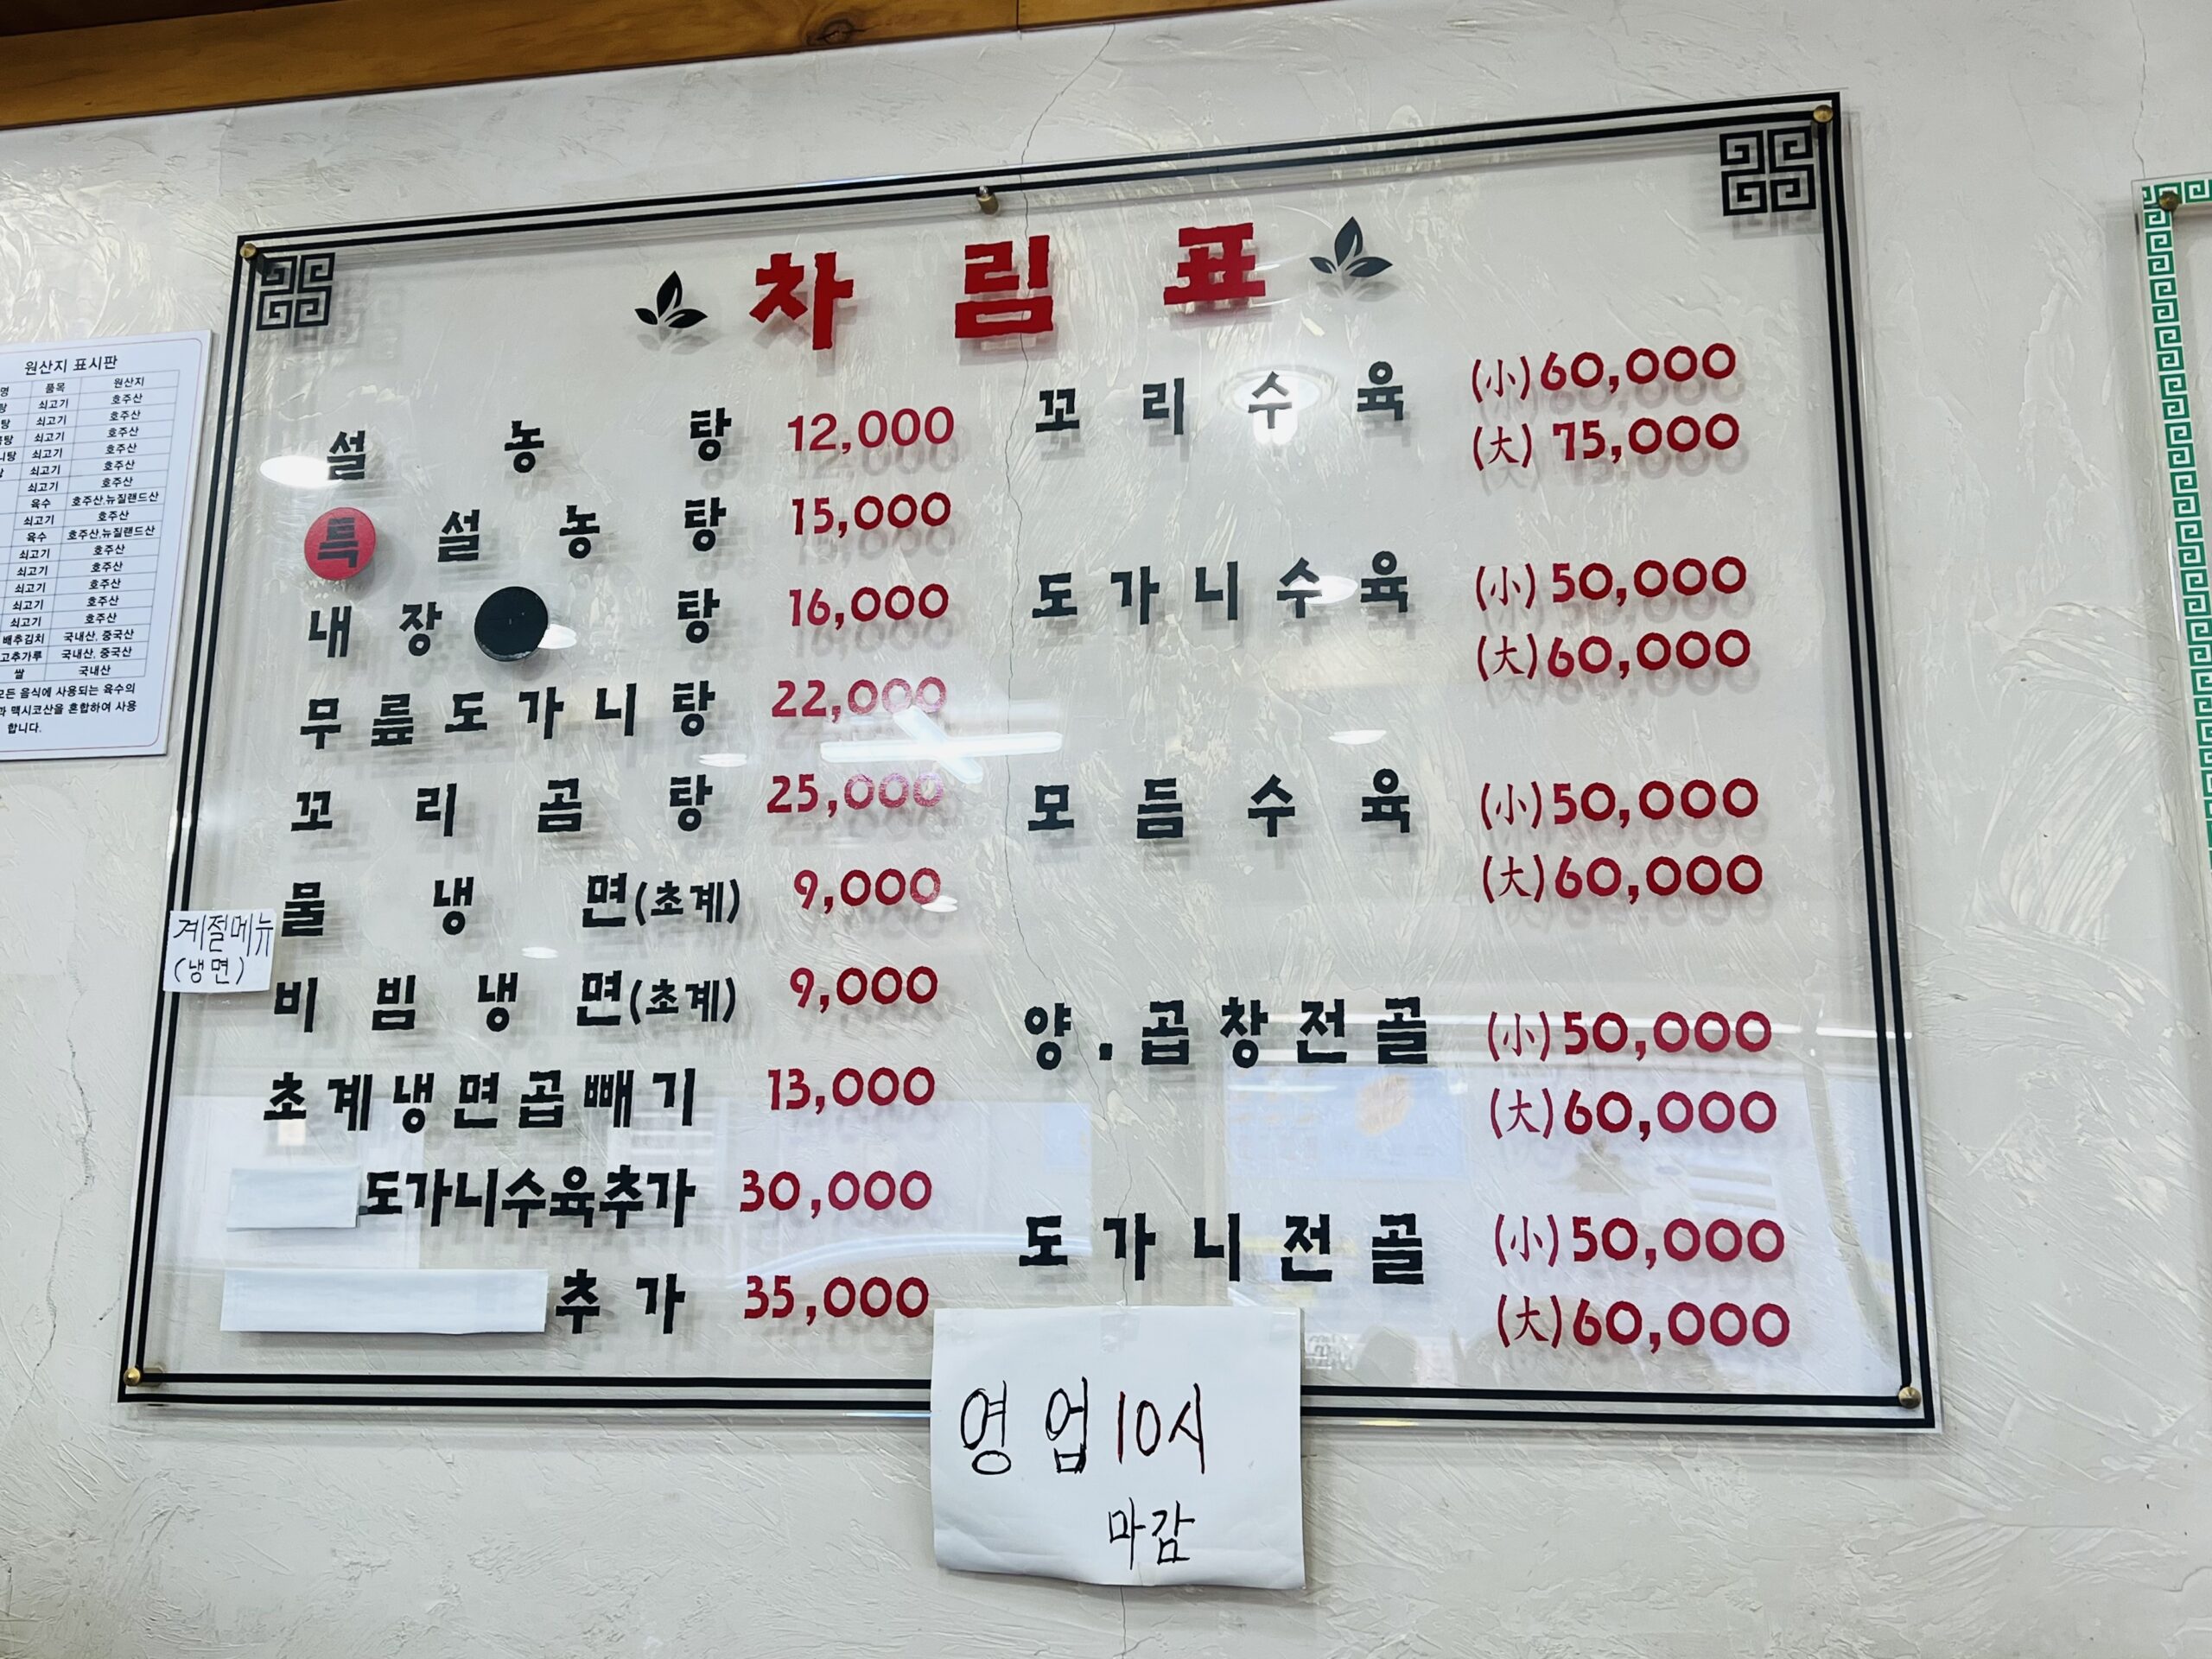 차림표
설농탕 12,000
특 설농탕 15,000
내장 탕 16,000
무릎도가니탕 22,000
꼬리곰탕 25,000
물냉면(초계) 9,000
비빔냉면(초계) 9,000
초계냉면곱빼기 13,000
도가니수육추가 30,000
추가 35,000
꼬리수육 (小) 60,000
(大) 75,000
도가니수육 (小) 50,000
(大) 60,000
모듬수육 (小) 50,000
(大) 60,000
양.곱창전골 (小) 50,000
(大) 60,000
도가니전골 (小) 50,000
(大) 60,000
계절메뉴
(냉면)
영업10시
마감
원산지 표시판
명 품목 원산지
탕 쇠고기 호주산
탕 쇠고기 호주산
탕 쇠고기 호주산
니탕 쇠고기 호주산
쇠고기 호주산
쇠고기 호주산
육수 호주산,뉴질랜드산
쇠고기 호주산
육수 호주산,뉴질랜드산
쇠고기 호주산
쇠고기 호주산
쇠고기 호주산
쇠고기 호주산
쇠고기 호주산
배추김치 국내산, 중국산
고추가루 국내산, 중국산
쌀 국내산
모든 음식에 사용되는 육수의
과 맥시코산을 혼합하여 사용
합니다.